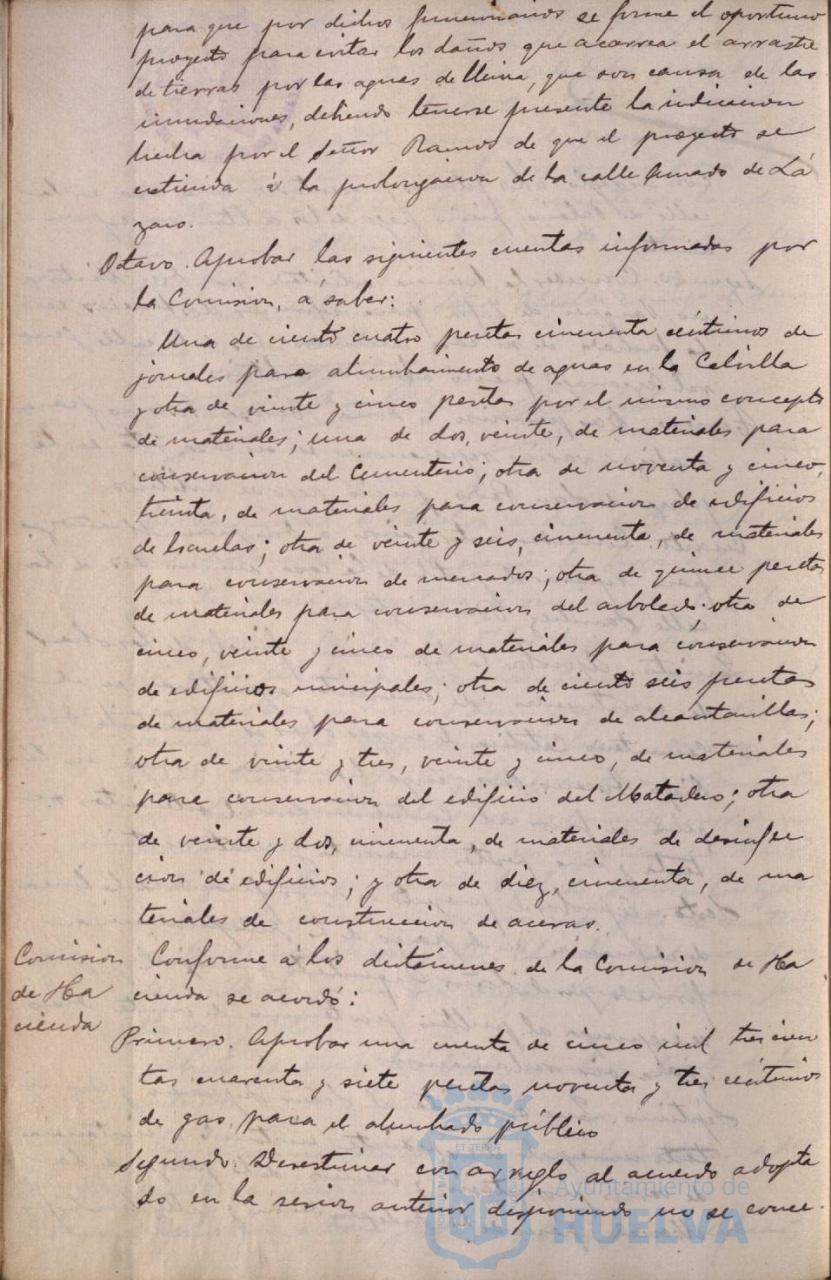 para que por dichos funcionarios se forme el oportuno
proyecto para evitar los daños que acarrea el arrastre
de tierras por las aguas de lluvia, que son causa de las
inundaciones, debiendo tenerse presente la indicacion
hecha por el Señor Ramos de que el proyecto se
extienda á la prolongacion de la calle Amado de Lá
zaro.
Octavo. Aprobar las siguientes cuentas informadas por
la Comision, á saber:
Una de ciento cuatro pesetas cincuenta céntimos de
jornales para alumbramiento de aguas en la Calvilla
y otra de veinte y cinco pesetas por el mismo concepto
de materiales; una de dos, veinte, de materiales para
conservacion del Cementerio; otra de noventa y cinco,
treinta, de materiales para conservacion de edificios
de Escuelas; otra de veinte y seis, cincuenta, de materiales
para conservacion de mercados; otra de quince pesetas
de materiales para conservacion del arbolado; otra de
cinco, veinte y cinco de materiales para conservacion
de edificios municipales; otra de ciento seis pesetas
de materiales para conservacion de alcantarillas;
otra de veinte y tres, veinte y cinco, de materiales
para conservacion del edificio del Matadero; otra
de veinte y dos, cincuenta, de materiales de desinfec
cion de edificios; y otra de diez, cincuenta, de ma
teriales de construccion de aceras.
Comision
de Ha
cienda
Conforme á los dictámenes de la Comision de Ha
cienda se acordó:
Primero. Aprobar una cuenta de cinco mil trescien
tas cuarenta y siete pesetas noventa y tres céntimos
de gas para el alumbrado público
Segundo. Desestimar con arreglo al acuerdo adopta
do en la sesion anterior disponiendo no se conce
Ayuntamiento de
HUELVA